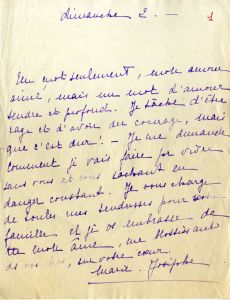 dimanche 2. —
1
Un mot seulement, mon amour
aimé, mais un mot d'amour
tendre et profond. Je tâche d'être
sage et d'avoir du courage, mais
que c'est dur! — Je me demande
comment je vais faire pr vivre
sans vous et vous sachant en
danger constant. Je vous charge
de toutes mes tendresses pour
famille et je vs embrasse de
tte mon âme, me blottissant
ds vos bras, sur votre cœur.
Marie-Josèphe